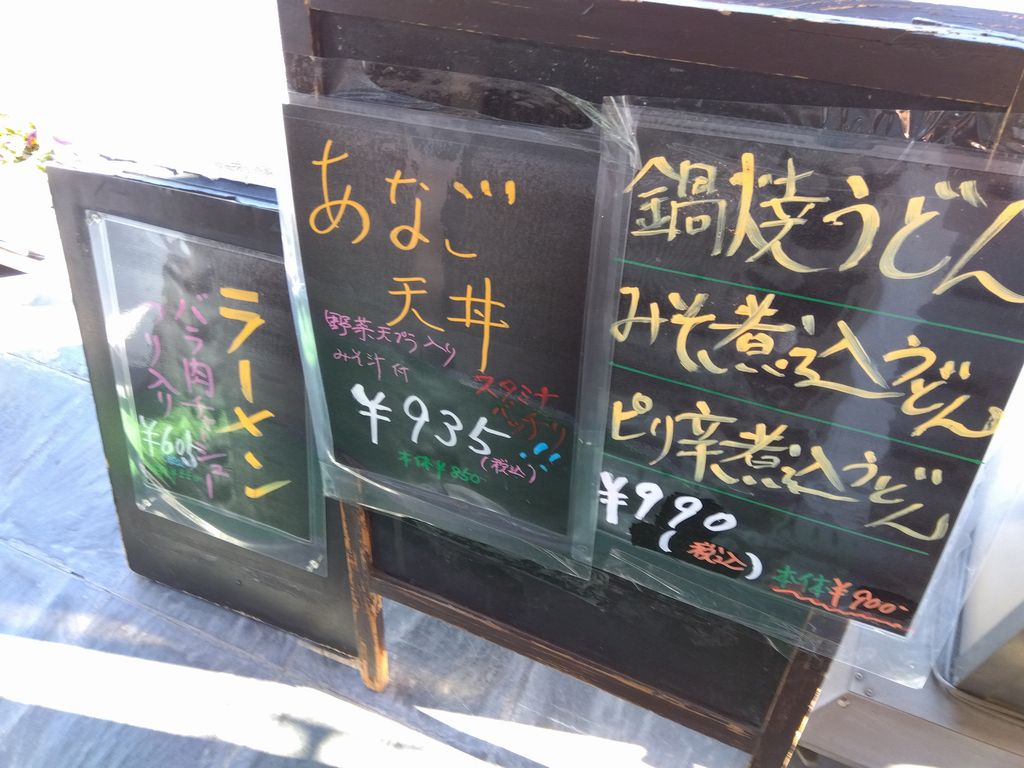 ラーメン
バラ肉チャーシュー
入り
¥605
あなご
天丼
野菜天プラ入り
みそ汁付
スタミナ
バッチリ!!!
¥935
(税込)
本体¥850
鍋焼うどん
みそ煮込うどん
ピリ辛煮込うどん
¥990
(税込)
本体¥900-